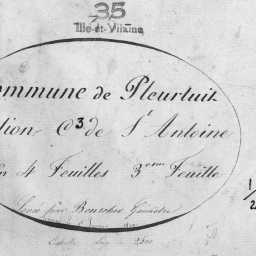 35
Ille-et-Vilaine
ommune de Pleurtuit
tion C3 de St Antoine
4 Feuilles 3eme Feuille
1/2
Géomètre
2500